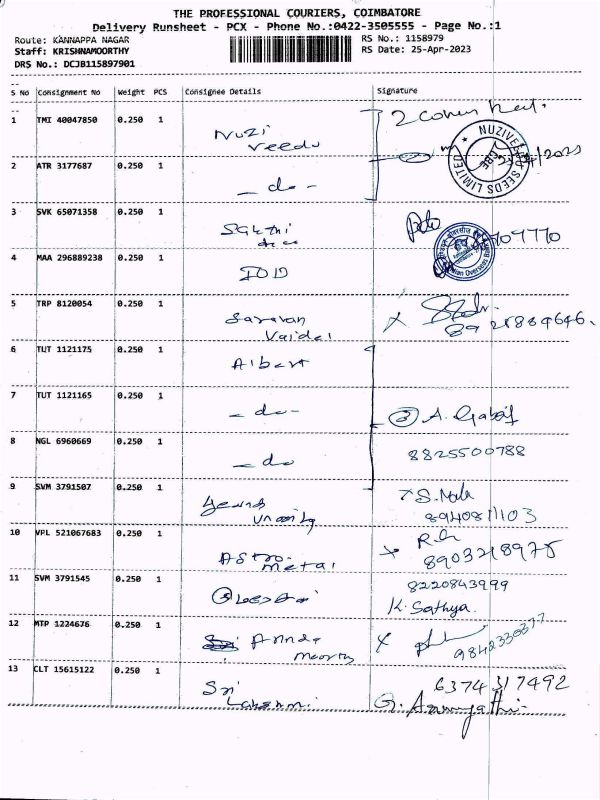 THE PROFESSIONAL COURIERS, COIMBATORE
Delivery Runsheet - PCX - Phone No.:0422-3505555 - Page No.:1
Route: KANNAPPA NAGAR
RS No.: 1158979
Staff: KRISHNAMOORTHY
RS Date: 25-Apr-2023
DRS No.: DCJB115897901
S No Consignment No Weight PCS Consignee Details Signature
1 TMI 40047850 0.250 1
Nuzi
veedu
2
NUZIVEEDU SEEDS LIMITED
CBE
2 ATR 3177687 0.250 1
- do -
3 SVK 65071358 0.250 1
Sakthi
4 MAA 296889238 0.250 1
IOB
Indian Overseas Bank
5 TRP 8120054 0.250 1
Saravan
6 TUT 1121175 0.250 1
Albert
7 TUT 1121165 0.250 1
- do -
3 A.
8 NGL 6960669 0.250 1
- do
8825500788
9 SVM 3791507 0.250 1
X S.
8940811103
10 VPL 521067683 0.250 1
Astro
metal
X
8903218975
11 SVM 3791545 0.250 1
8220843999
K. Sathya.
12 MTP 1224676 0.250 1
Annai
X
13 CLT 15615122 0.250 1
Sri
Lakshmi
6374317492